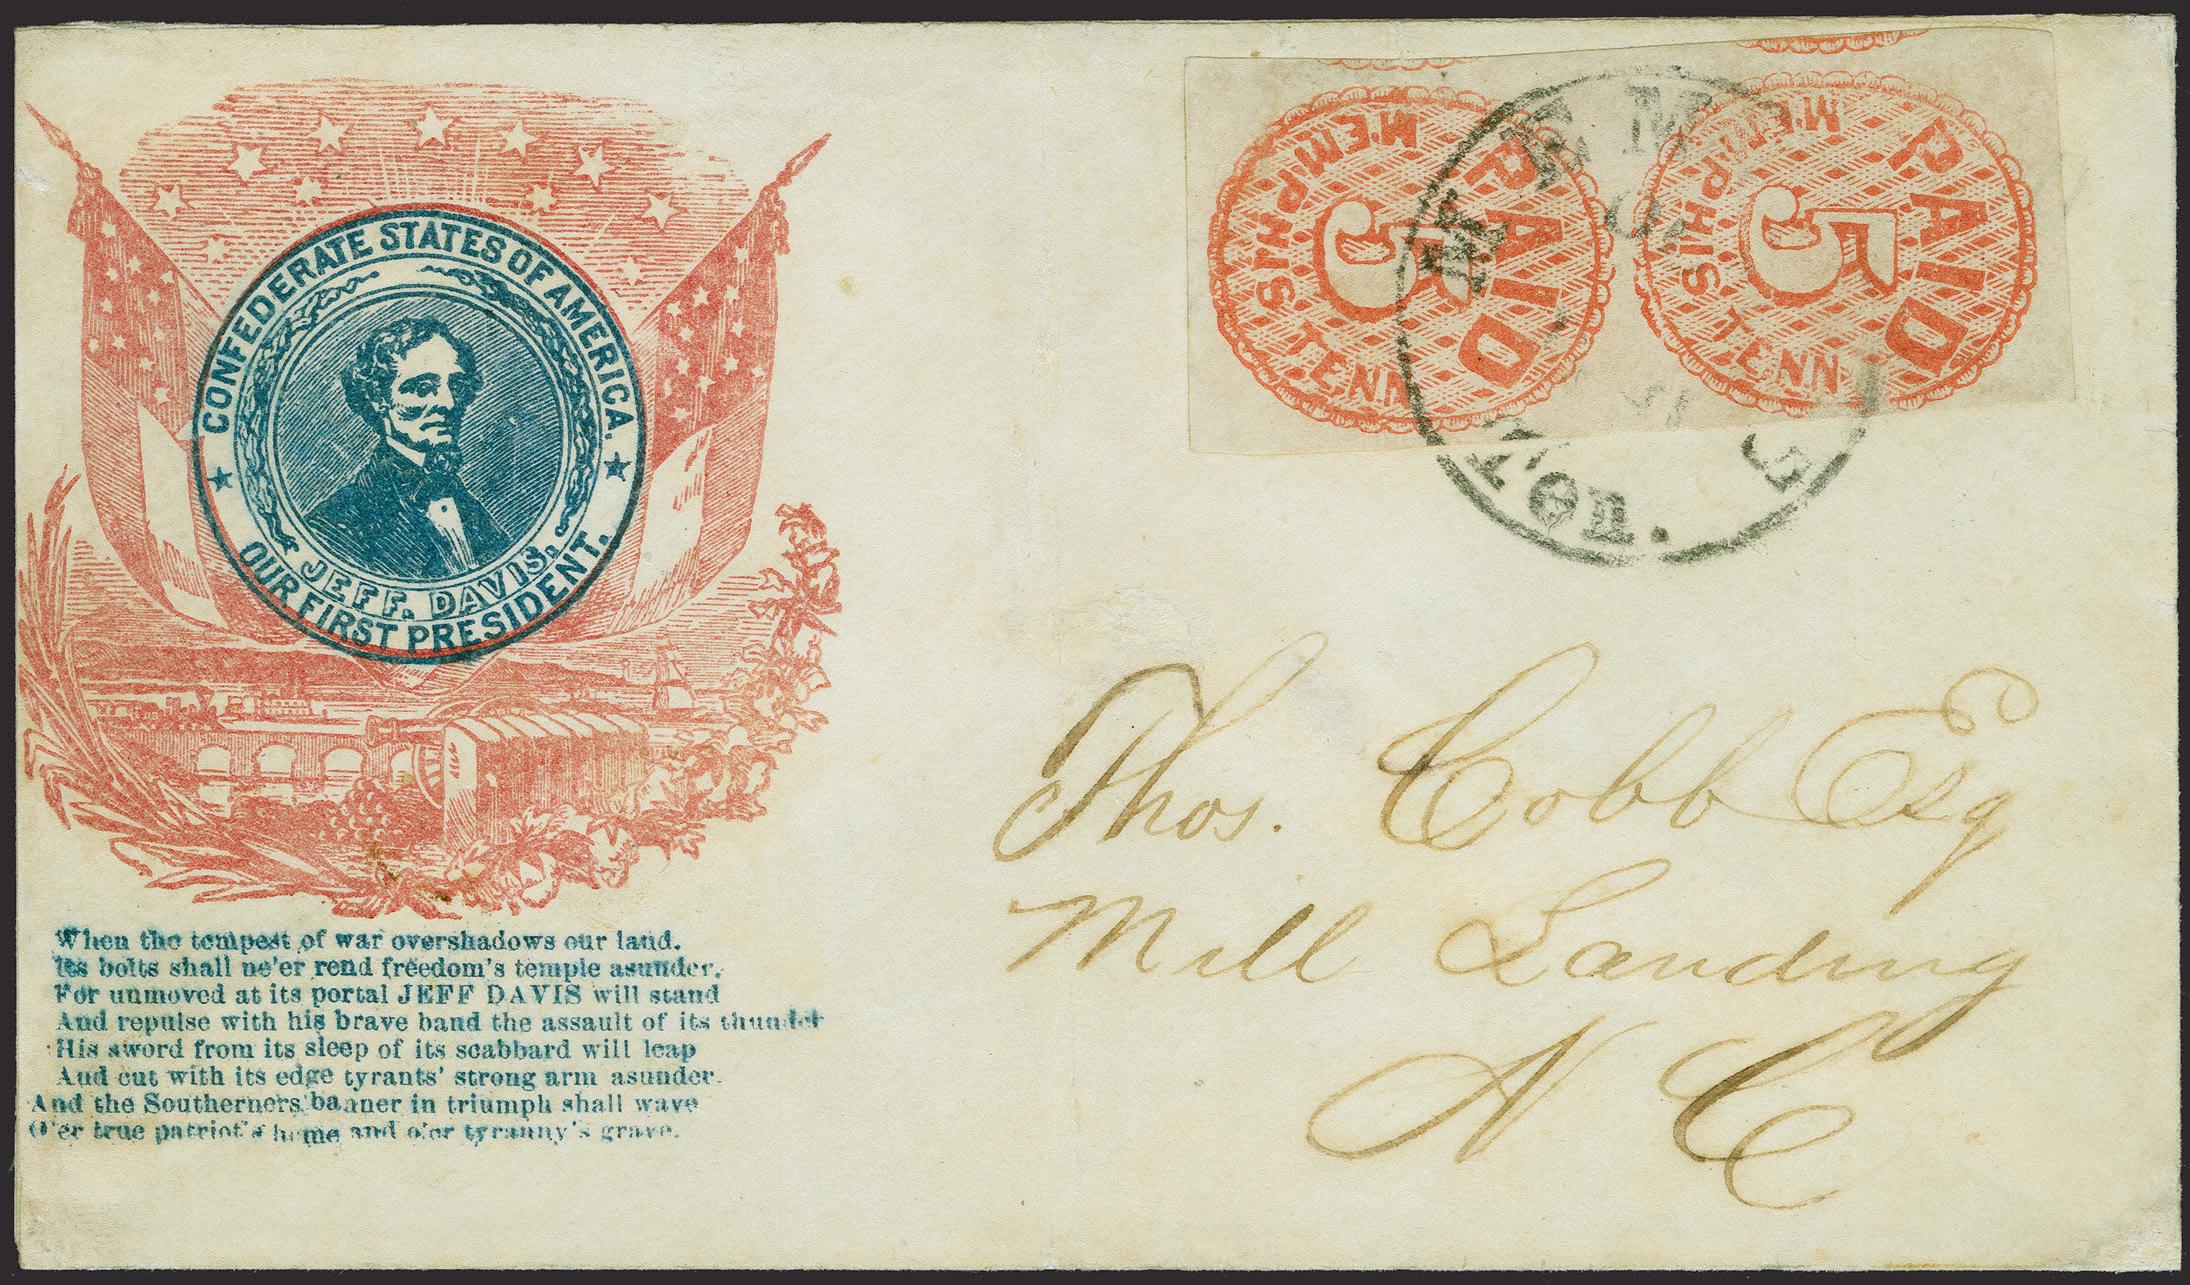 CONFEDERATE STATES OF AMERICA.
JEFF. DAVIS.
OUR FIRST PRESIDENT.
When the tempest of war overshadows our land.
Its bolts shall ne'er rend freedom's temple asunder,
For unmoved at its portal JEFF DAVIS will stand
And repulse with his brave band the assault of its thunder
His sword from its sleep of its scabbard will leap
And cut with its edge tyrants' strong arm asunder.
And the Southerners' banner in triumph shall wave
O'er true patriot's home and o'er tyranny's grave.
PAID
5
MEMPHIS TENN
PAID
5
MEMPHIS TENN
Thos. Cobb Esq
Mill Landing
N C